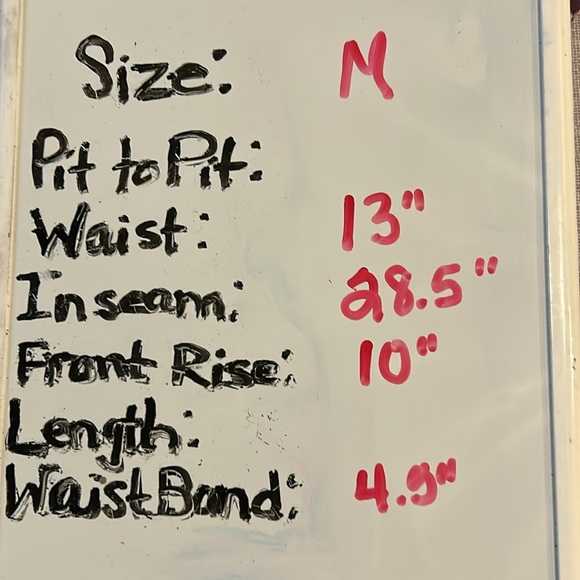 Size: M
Pit to Pit:
Waist: 13"
Inseam: 28.5"
Front Rise: 10"
Length:
WaistBand: 4.9"